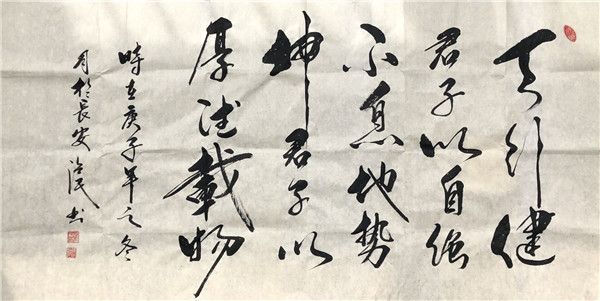 天行健
君子以自强
不息地势
坤君子以
厚德载物
时在庚子年之冬
月于长安治民书